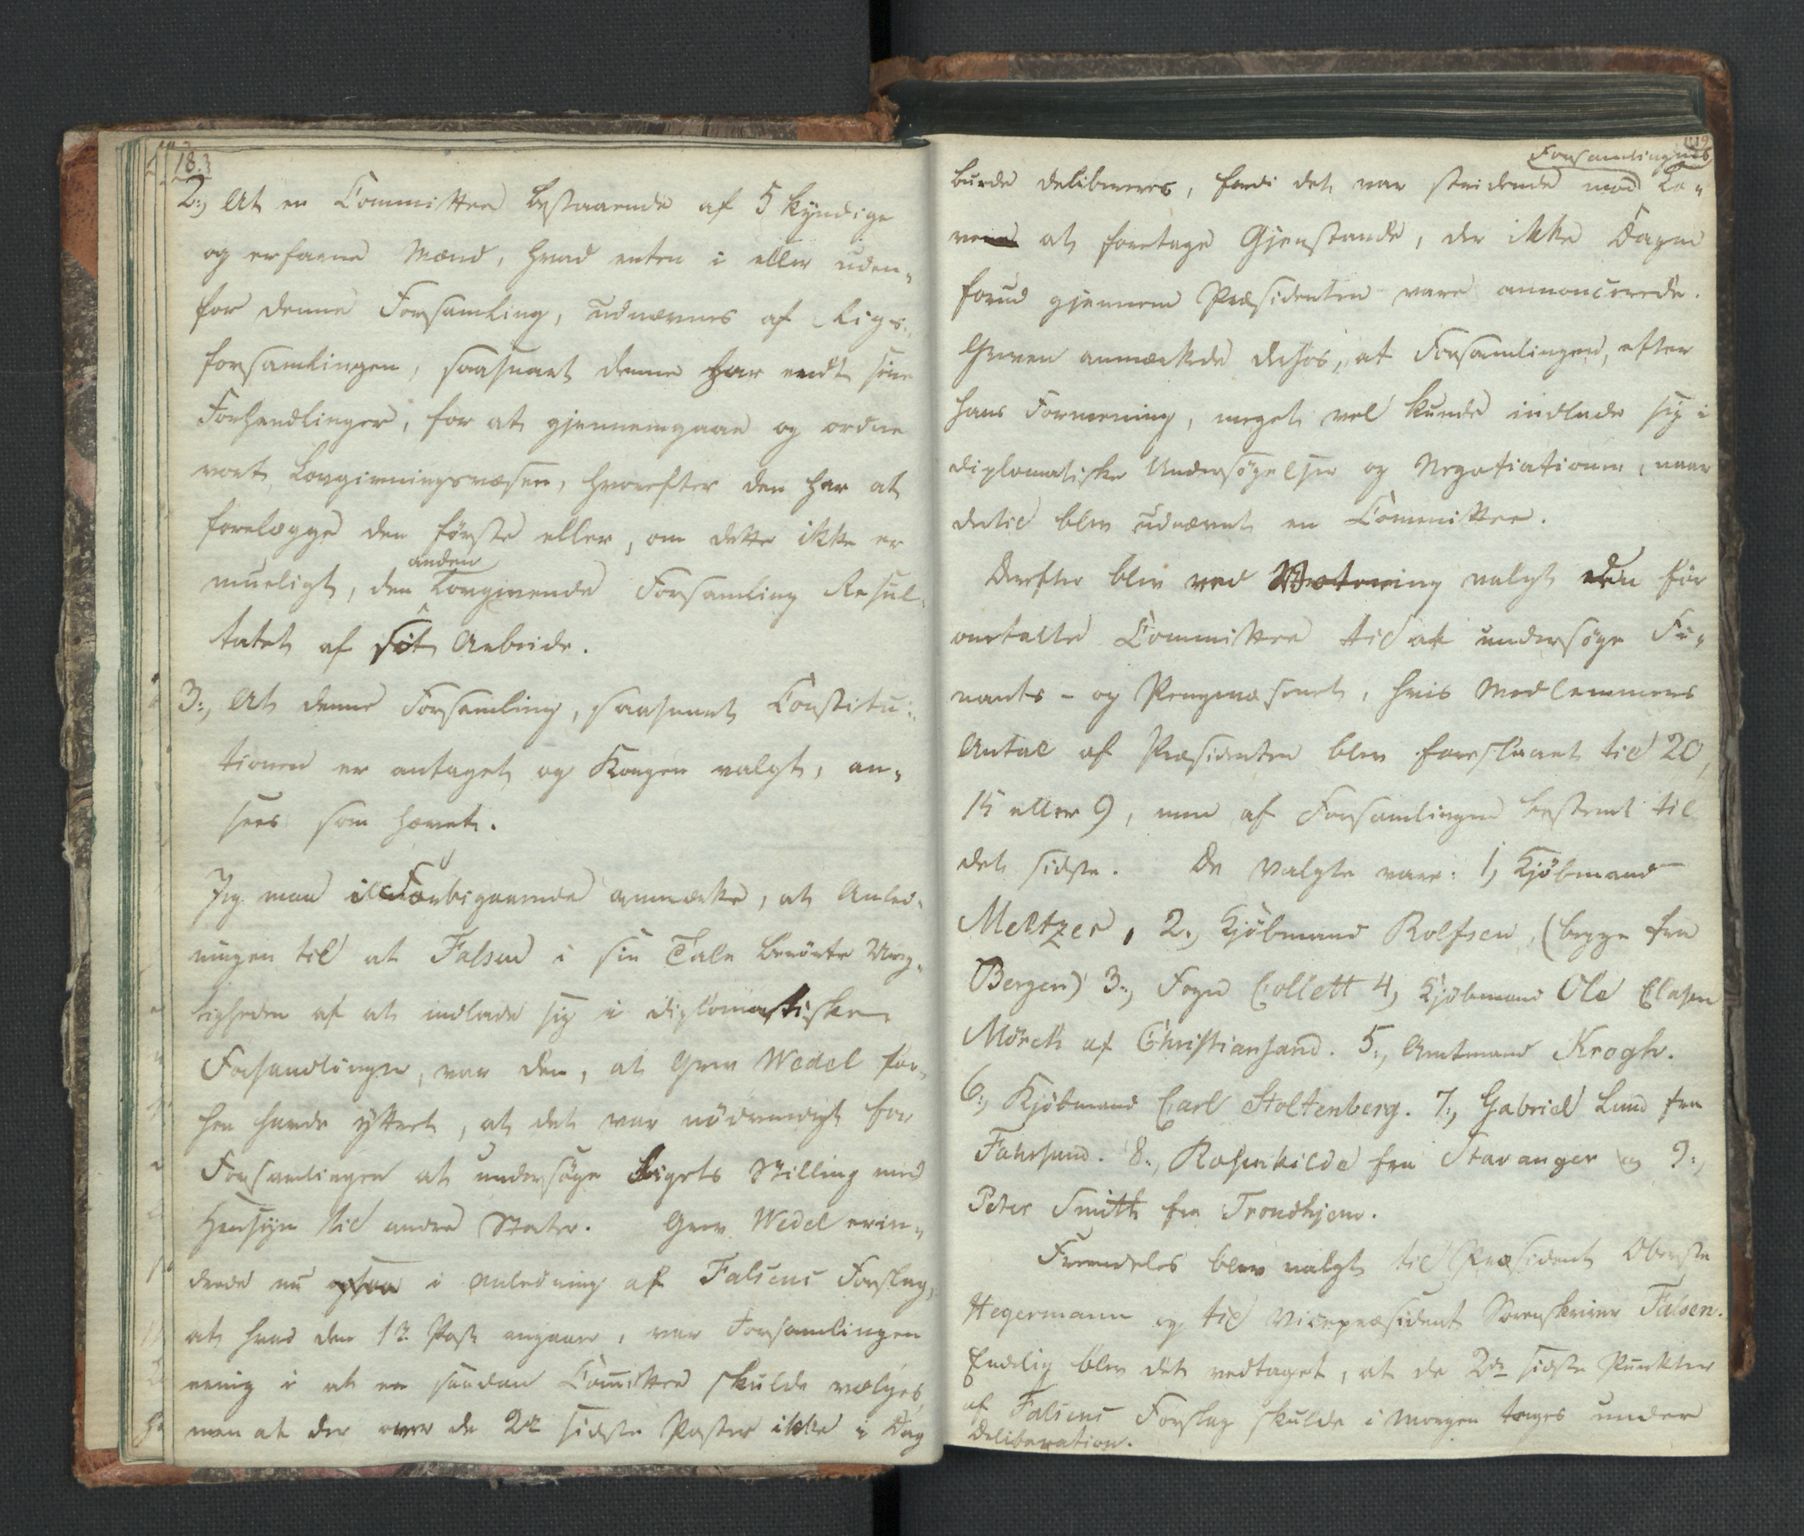 18.
2., At en Committee bestaaende af 5 kyndige
og erfarne Mænd, hvad enten i eller uden„
for denne Forsamling, udnævnes af Rigs„
forsamlingen, saasnart denne har endt sine
Forhandlinger, for at gjennemgaae og ordne
vort Lovgivningsvæsen, hvorefter den har at
forelægge den første eller, om dette ikke er
anden
mueligt, den Lovgivende Forsamling Resul„
tatet af sit Arbeide.
3., At denne Forsamling, saasnart Constitu„
tionen er antaget og Kongen valgt, an„
sees som hævet.
Jeg maa i Forbigaaende anmærke, at Anled„
ningen til at Falsen i sin Tale berørte Urig„
tigheden af at indlade sig i diplomatiske
Forhandlinger, var den, at Grev Wedel for„
hen havde yttret, at det var nødvendigt for
Forsamlingen at undersøge Rigets Stilling med
Hensyn til andre Stater. Grev Wedel erin„
drede nu ogsaa i Anledning af Falsens Forslag,
at hvad den 1ste Post angaaer, var Forsamlingen
eenig i at en saadan Committee skulde vælges,
men at der over de 2de sidste Poster ikke i Dag
Forsamlingens
burde delibereres, fordi det var stridende mod Lo„
vene at foretage Gjenstande, der ikke Dagen
forud gjennem Præsidenten vare annoncerede.
Greven anmærkede derhos, at Forsamlingen, efter
hans Formening, meget vel kunde indlade sig i
diplomatiske Undersøgelser og Negotiationer, naar
dertil blev udnævnt en Committee.
Derefter blev ved Votering valgt den før
omtalte Committee til at undersøge Fi„
nants- og Pengevæsenet, hvis Medlemmers
Antal af Præsidenten blev foreslaaet til 20,
15 eller 9, men af Forsamlingen bestemt til
det sidste. De Valgte vare: 1, Kjøbmand
Meltzer, 2., Kjøbmand Rolfsen, (begge fra
Bergen) 3., Foged Collett 4, Kjøbmand Ole Clausen
Mörch af Christiansand. 5., Amtmand Krogh.
6., Kjøbmand Carl Stoltenberg. 7., Gabriel Lund fra
Fahrsund. 8., Rosenkilde fra Stavanger og 9.,
Peter Smith fra Trondhjem.
Fremdeles blev valgt til Præsident Oberste
Hegermann og til Vicepræsident Sorenskriver Falsen.
Endelig blev det vedtaget, at de 2de sidste Punkter
af Falsens Forslag skulde i Morgen tages under
Deliberation.